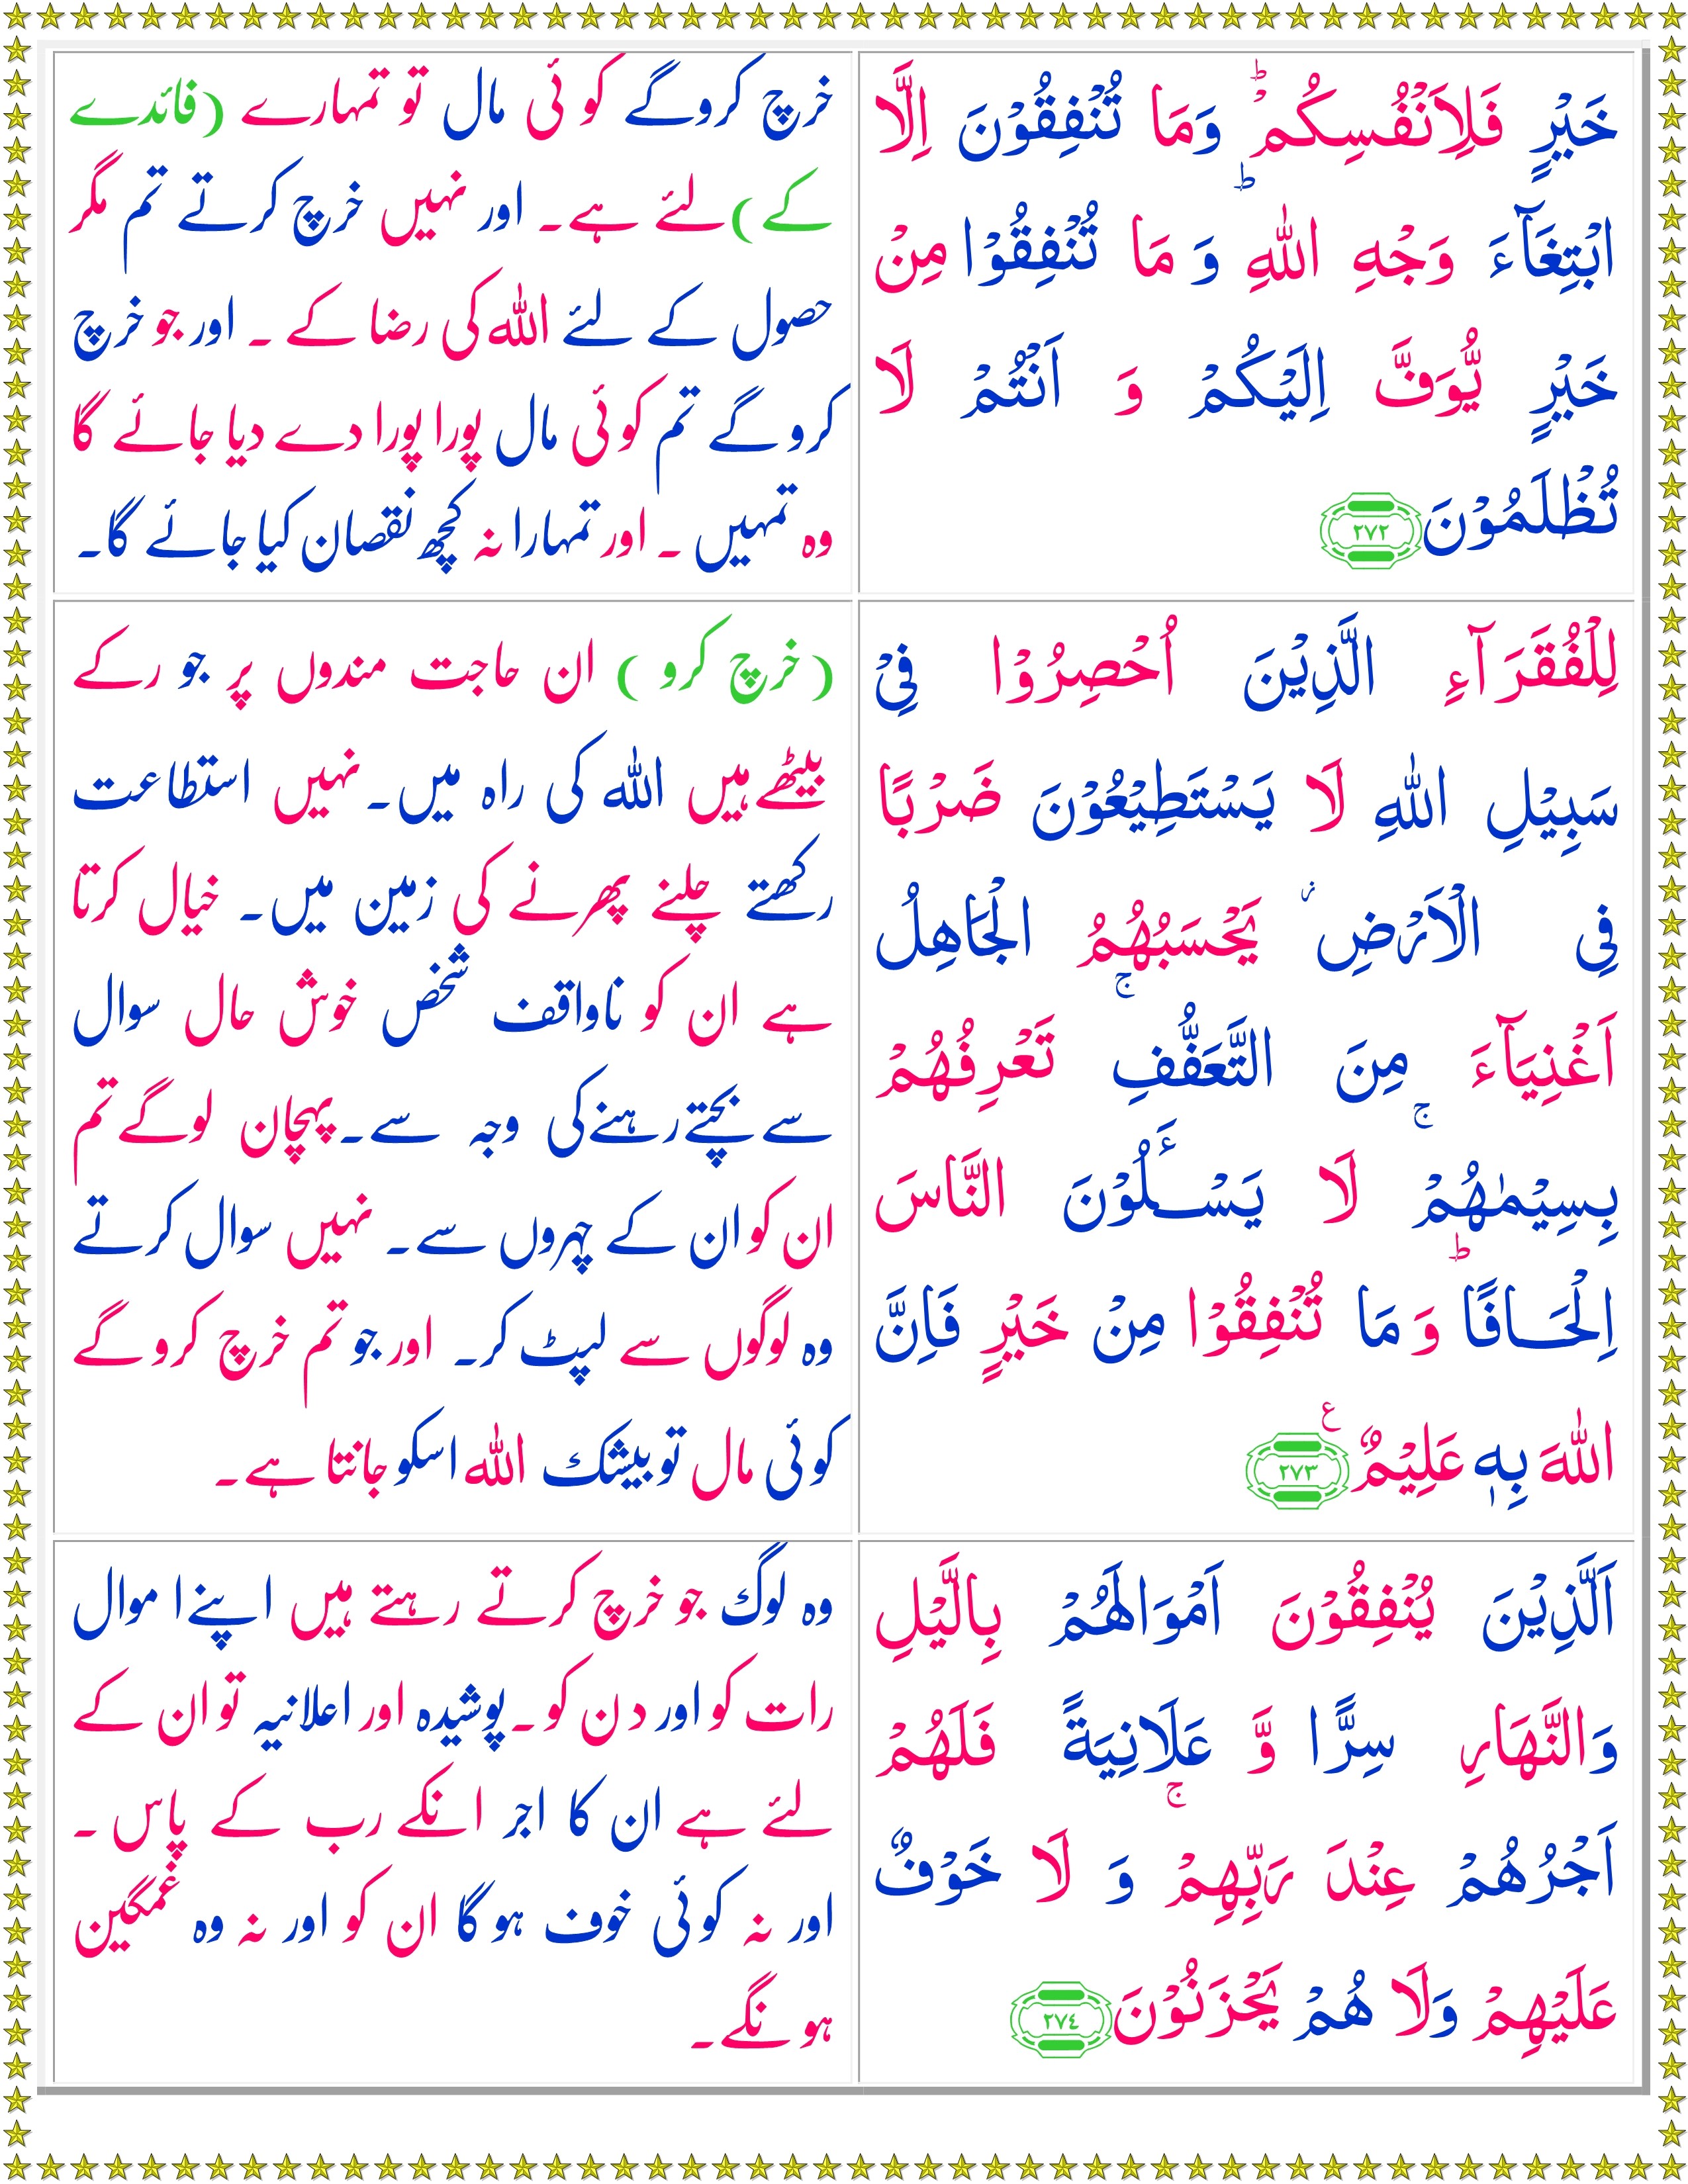 خَيْرٍ فَلِاَنْفُسِكُمْ ؕ وَمَا تُنْفِقُوْنَ اِلَّا
ابْتِغَآءَ وَجْهِ اللّٰهِ ؕ وَ مَا تُنْفِقُوْا مِنْ
خَيْرٍ يُّوَفَّ اِلَيْكُمْ وَ اَنْتُمْ لَا
تُظْلَمُوْنَ ۲۷۲
خرچ کروگے کوئی مال تو تمہارے (فائدے
کے) لئے ہے۔ اور نہیں خرچ کرتے تم مگر
حصول کے لئے اللہ کی رضا کے ۔ اور جو خرچ
کروگے تم کوئی مال پورا پورا دے دیا جائے گا
وہ تمہیں ۔ اور تمہارا نہ کچھ نقصان کیا جائے گا۔
لِلْفُقَرَآءِ الَّذِيْنَ اُحْصِرُوْا فِيْ
سَبِيْلِ اللّٰهِ لَا يَسْتَطِيْعُوْنَ ضَرْبًا
فِي الْاَرْضِ ؗ يَحْسَبُهُمُ الْجَاهِلُ
اَغْنِيَآءَ مِنَ التَّعَفُّفِ ۚ تَعْرِفُهُمْ
بِسِيْمٰهُمْ ۚ لَا يَسْـَٔلُوْنَ النَّاسَ
اِلْحَـافًا ؕ وَ مَا تُنْفِقُوْا مِنْ خَيْرٍ فَاِنَّ
اللّٰهَ بِهٖ عَلِيْمٌ ۲۷۳ ع
(خرچ کرو) ان حاجت مندوں پر جو رکے
بیٹھے ہیں اللہ کی راہ میں۔ نہیں استطاعت
رکھتے چلنے پھرنے کی زمین میں۔ خیال کرتا
ہے ان کو ناواقف شخص خوش حال سوال
سے بچتے رہنے کی وجہ سے۔ پہچان لوگے تم
ان کو ان کے چہروں سے۔ نہیں سوال کرتے
وہ لوگوں سے لپٹ کر۔ اور جو تم خرچ کروگے
کوئی مال تو بیشک اللہ اسکو جانتا ہے۔
اَلَّذِيْنَ يُنْفِقُوْنَ اَمْوَالَهُمْ بِالَّيْلِ
وَالنَّهَارِ سِرًّا وَّ عَلَانِيَةً فَلَهُمْ
اَجْرُهُمْ عِنْدَ رَبِّهِمْ ۚ وَ لَا خَوْفٌ
عَلَيْهِمْ وَلَا هُمْ يَحْزَنُوْنَ ۲۷٤
وہ لوگ جو خرچ کرتے رہتے ہیں اپنے اموال
رات کو اور دن کو۔ پوشیدہ اور اعلانیہ تو ان کے
لئے ہے ان کا اجر انکے رب کے پاس ۔
اور نہ کوئی خوف ہوگا ان کو اور نہ وہ غمگین
ہونگے۔